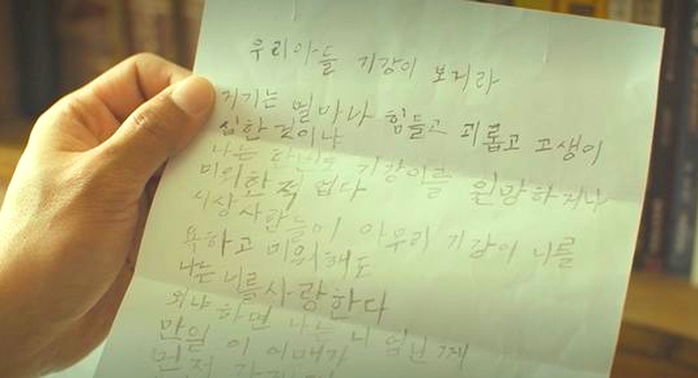 우리아들 기강이 보거라
거기는 얼마나 힘들고 괴롭고 고생이
심한 것이냐
나는 한번도 기강이를 원망하거나
미워한적 업다
시상사람들이 아무리 기강이 너를
욕하고 미워해도
나는 너를 사랑한다
외냐 하면 나는 니 엄닌게
만일 이 어매가
먼저